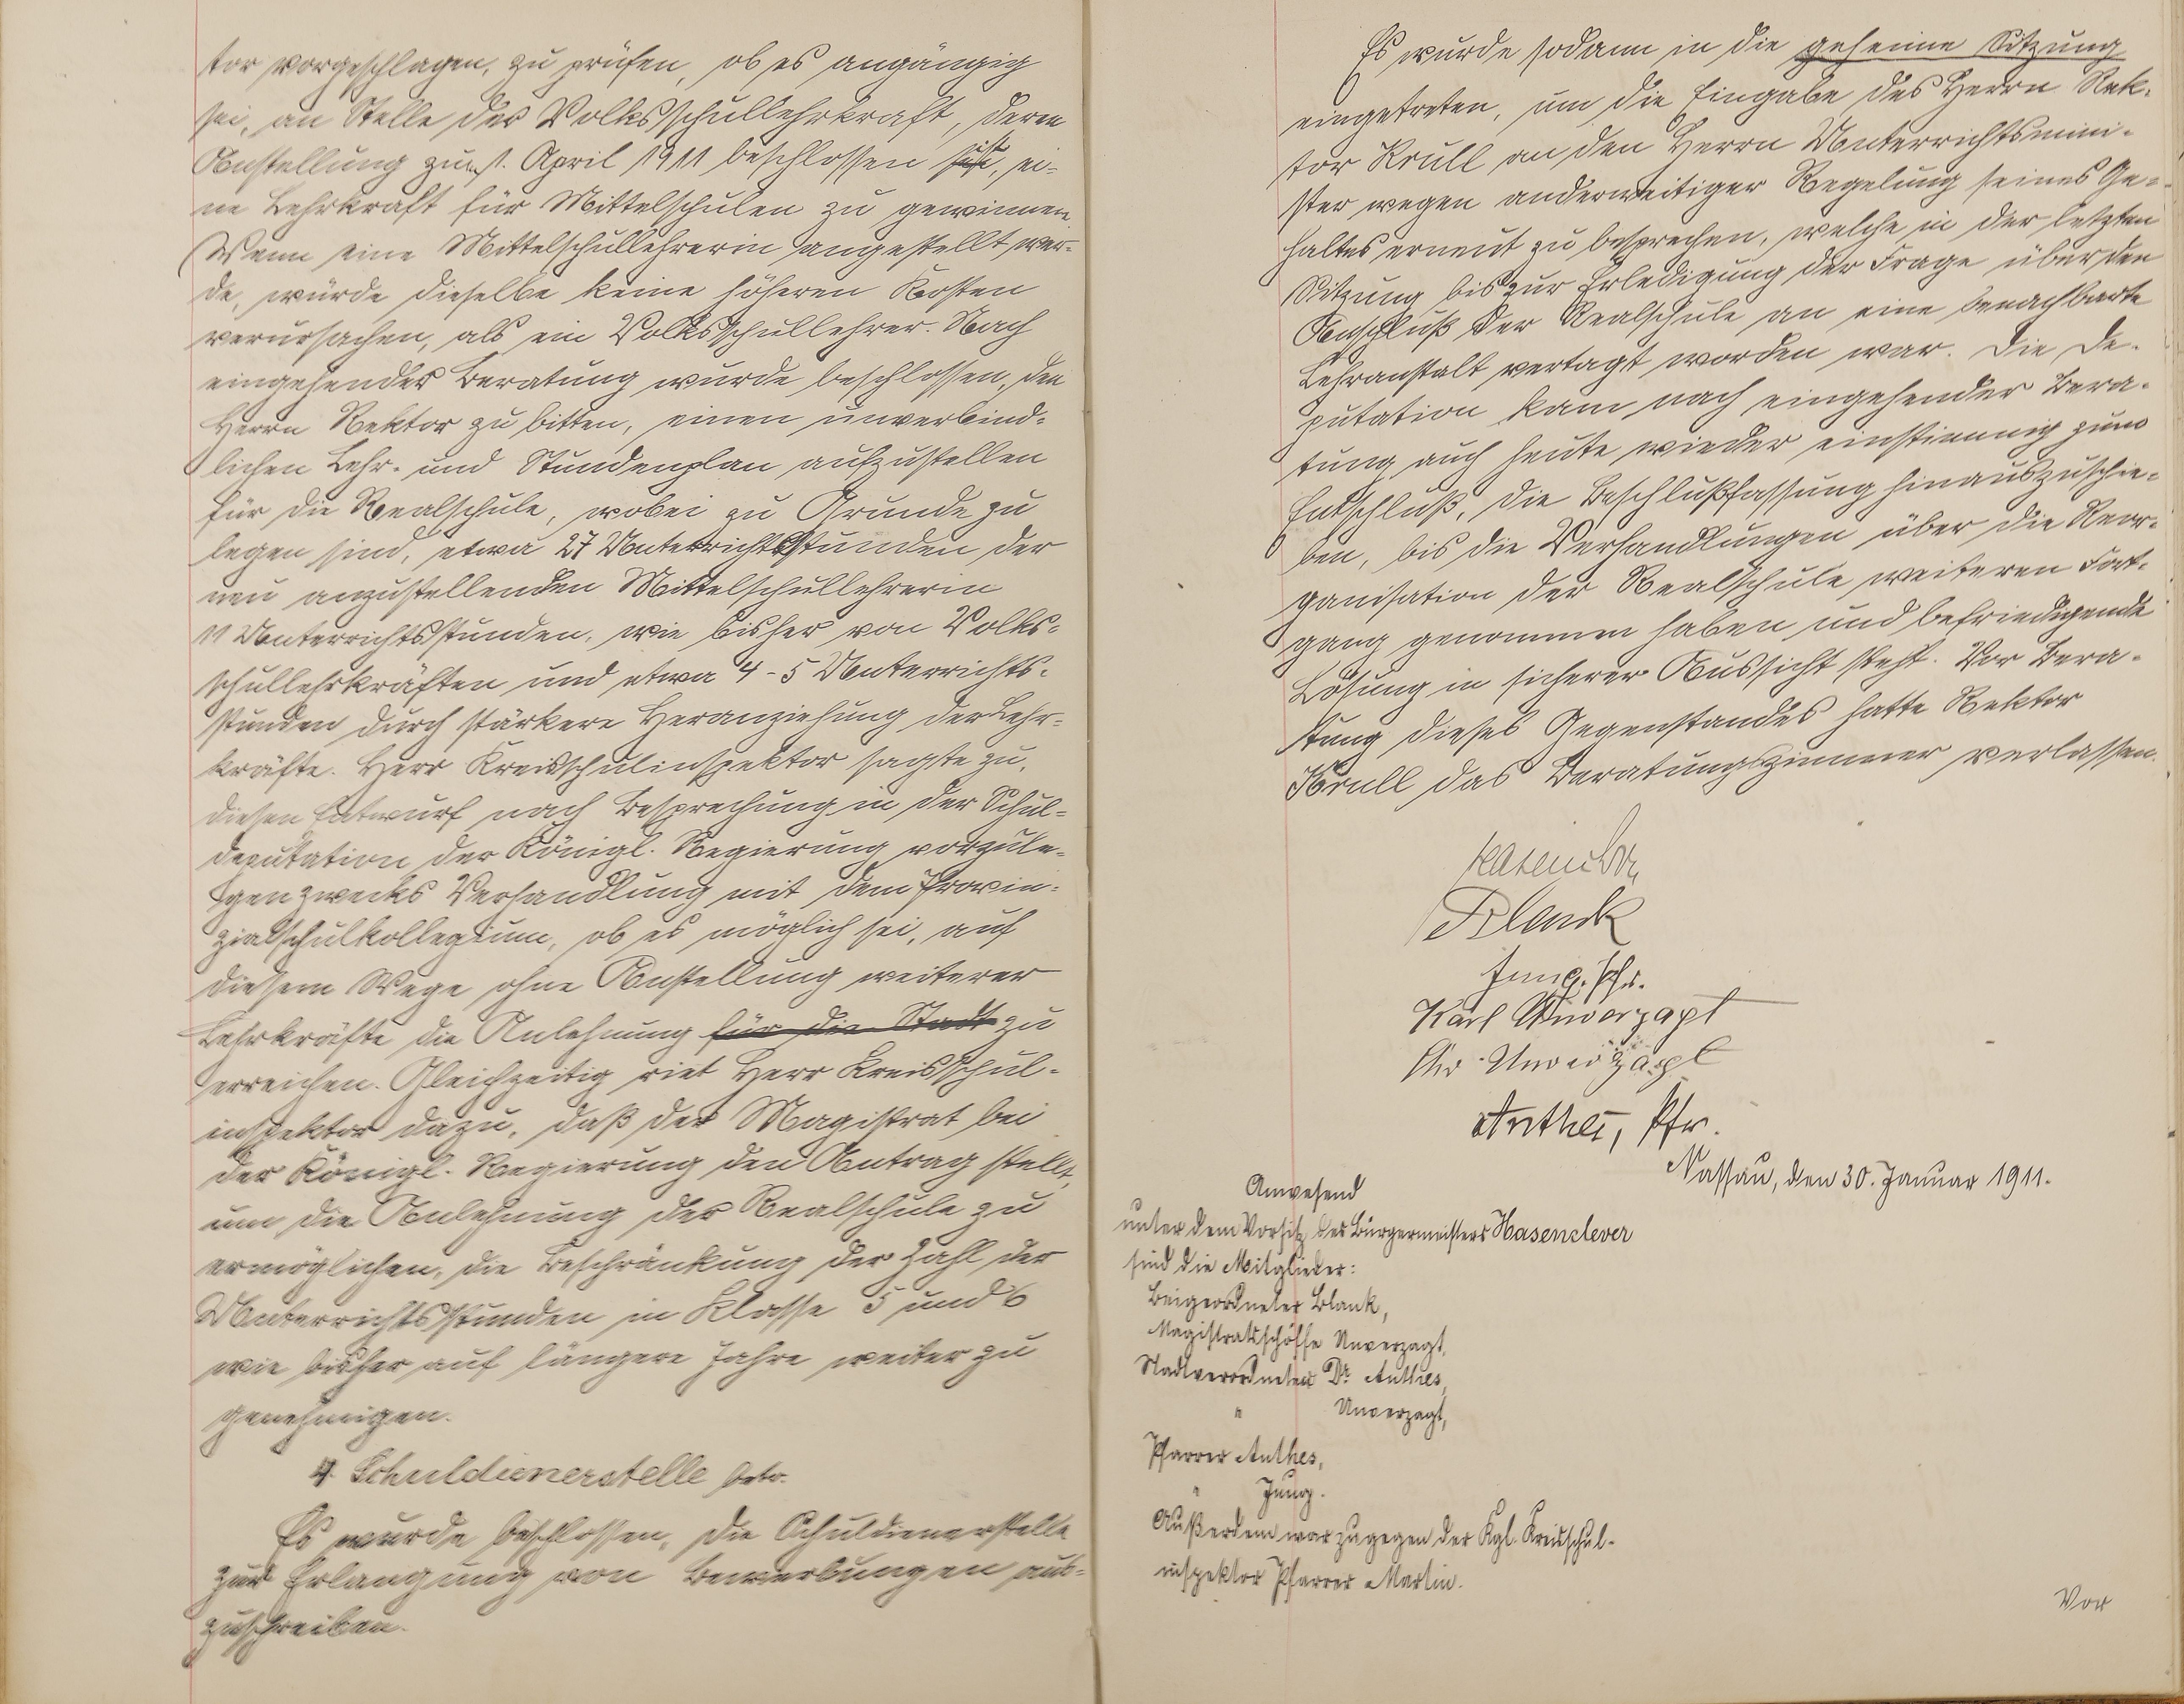 tor vorgeschlagen, zu prüfen, ob es angängig
sei, an Stelle der Volksschullehrkraft, deren
Anstellung zum 1. April 1911 beschlossen ist, ei-
ne Lehrkraft für Mittelschulen zu gewinnen.
Wenn eine Mittelschullehrerin angestellt wer-
de, würde dieselbe keine höheren Kosten
verursachen, als ein Volksschullehrer. Nach
eingehender Beratung wurde beschlossen, den
Herrn Rektor zu bitten, einen unverbind-
lichen Lehr- und Stundenplan aufzustellen
für die Realschule, wobei zu Grunde zu
legen sind, etwa 27 Unterrichtsstunden der
neu anzustellenden Mittelschullehrerin
11 Unterrichtsstunden, wie bisher von Volks-
schullehrkräften und etwa 4-5 Unterrichts-
stunden durch stärkere Heranziehung der Lehr-
kräfte. Herr Kreisschulinspektor sagte zu,
diesen Entwurf nach Besprechung in der Schul-
deputation der Königl. Regierung vorzule-
gen zwecks Verhandlung mit dem Provin-
zialschulkollegium, ob es möglich sei, auf
diesem Wege ohne Anstellung weiterer
Lehrkräfte die Anlehnung für die Stadt zu
erreichen. Gleichzeitig riet Herr Kreisschul-
inspektor dazu, daß der Magistrat bei
der Königl. Regierung den Antrag stellt,
um die Anlehnung der Realschule zu
ermöglichen, die Beschränkung der Zahl der
Unterrichtsstunden in Klasse 5 und 6
wie bisher auf längere Jahre weiter zu
genehmigen.
4. Schuldienerstelle betr.
Es wurde beschlossen, die Schuldienerstelle
zur Erlangung von Bewerbungen aus-
zuschreiben.
Es wurde sodann in die geheime Sitzung
eingetreten, um die Eingabe des Herrn Rek-
tor Krull an den Herrn Unterrichtsmini-
ster wegen anderweitiger Regelung seines Ge-
haltes erneut zu besprechen, welche in der letzten
Sitzung bis zur Erledigung der Frage über den
Anschluß der Realschule an eine benachbarte
Lehranstalt vertagt worden war. Die De-
putation kam nach eingehender Bera-
tung auch heute wieder einstimmig zum
Entschluß, die Beschlußfassung hinauszuschie-
ben, bis die Verhandlungen über die Reor-
ganisation der Realschule weiteren Fort-
gang genommen haben und befriedigende
Lösung in sicherer Aussicht steht. Vor Bera-
tung dieses Gegenstandes hatte Rektor
Krull das Beratungszimmer verlassen.
Hasenclever
Blank
Jung, Pfr.
Karl Unverzagt
Chr. Unverzagt
Anthes, Pfr.
Nassau, den 30. Januar 1911.
Anwesend
unter dem Vorsitz des Bürgermeisters Hasenclever
sind die Mitglieder:
Beigeordneter Blank,
Magistratsschöffe Unverzagt,
Stadtverordneter Dr. Anthes,
" Unverzagt,
Pfarrer Anthes,
" Jung.
Außerdem war zugegen der Kgl. Kreisschul-
inspektor Pfarrer Martin.
Vor